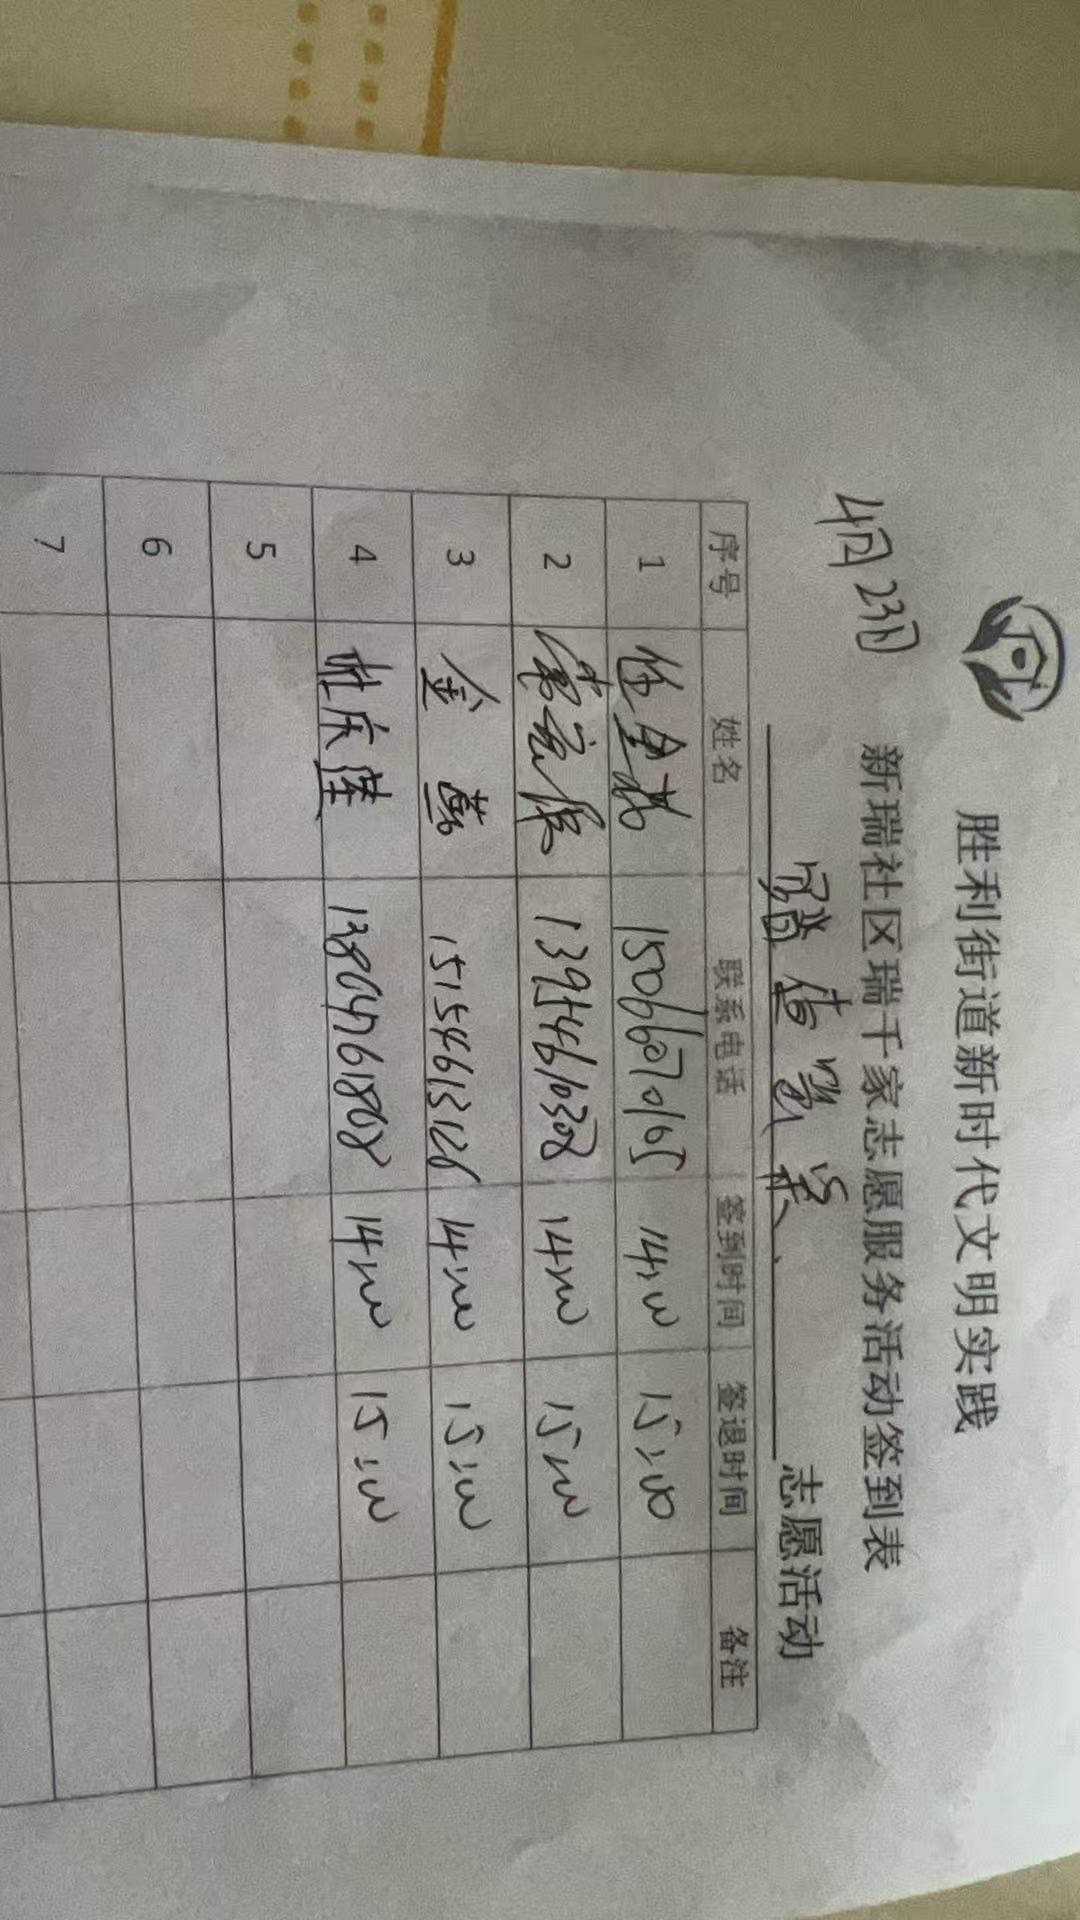 胜利街道新时代文明实践
新瑞社区瑞千家志愿服务活动签到表
4月23日
志愿活动
序号 姓名 联系电话 签到时间 签退时间 备注
1 15066070165 14:00 15:00
2 13954610308 14:00 15:00
3 金燕 15154613126 14:00 15:00
4 杜庆莲 13804761868 14:00 15:00
5
6
7